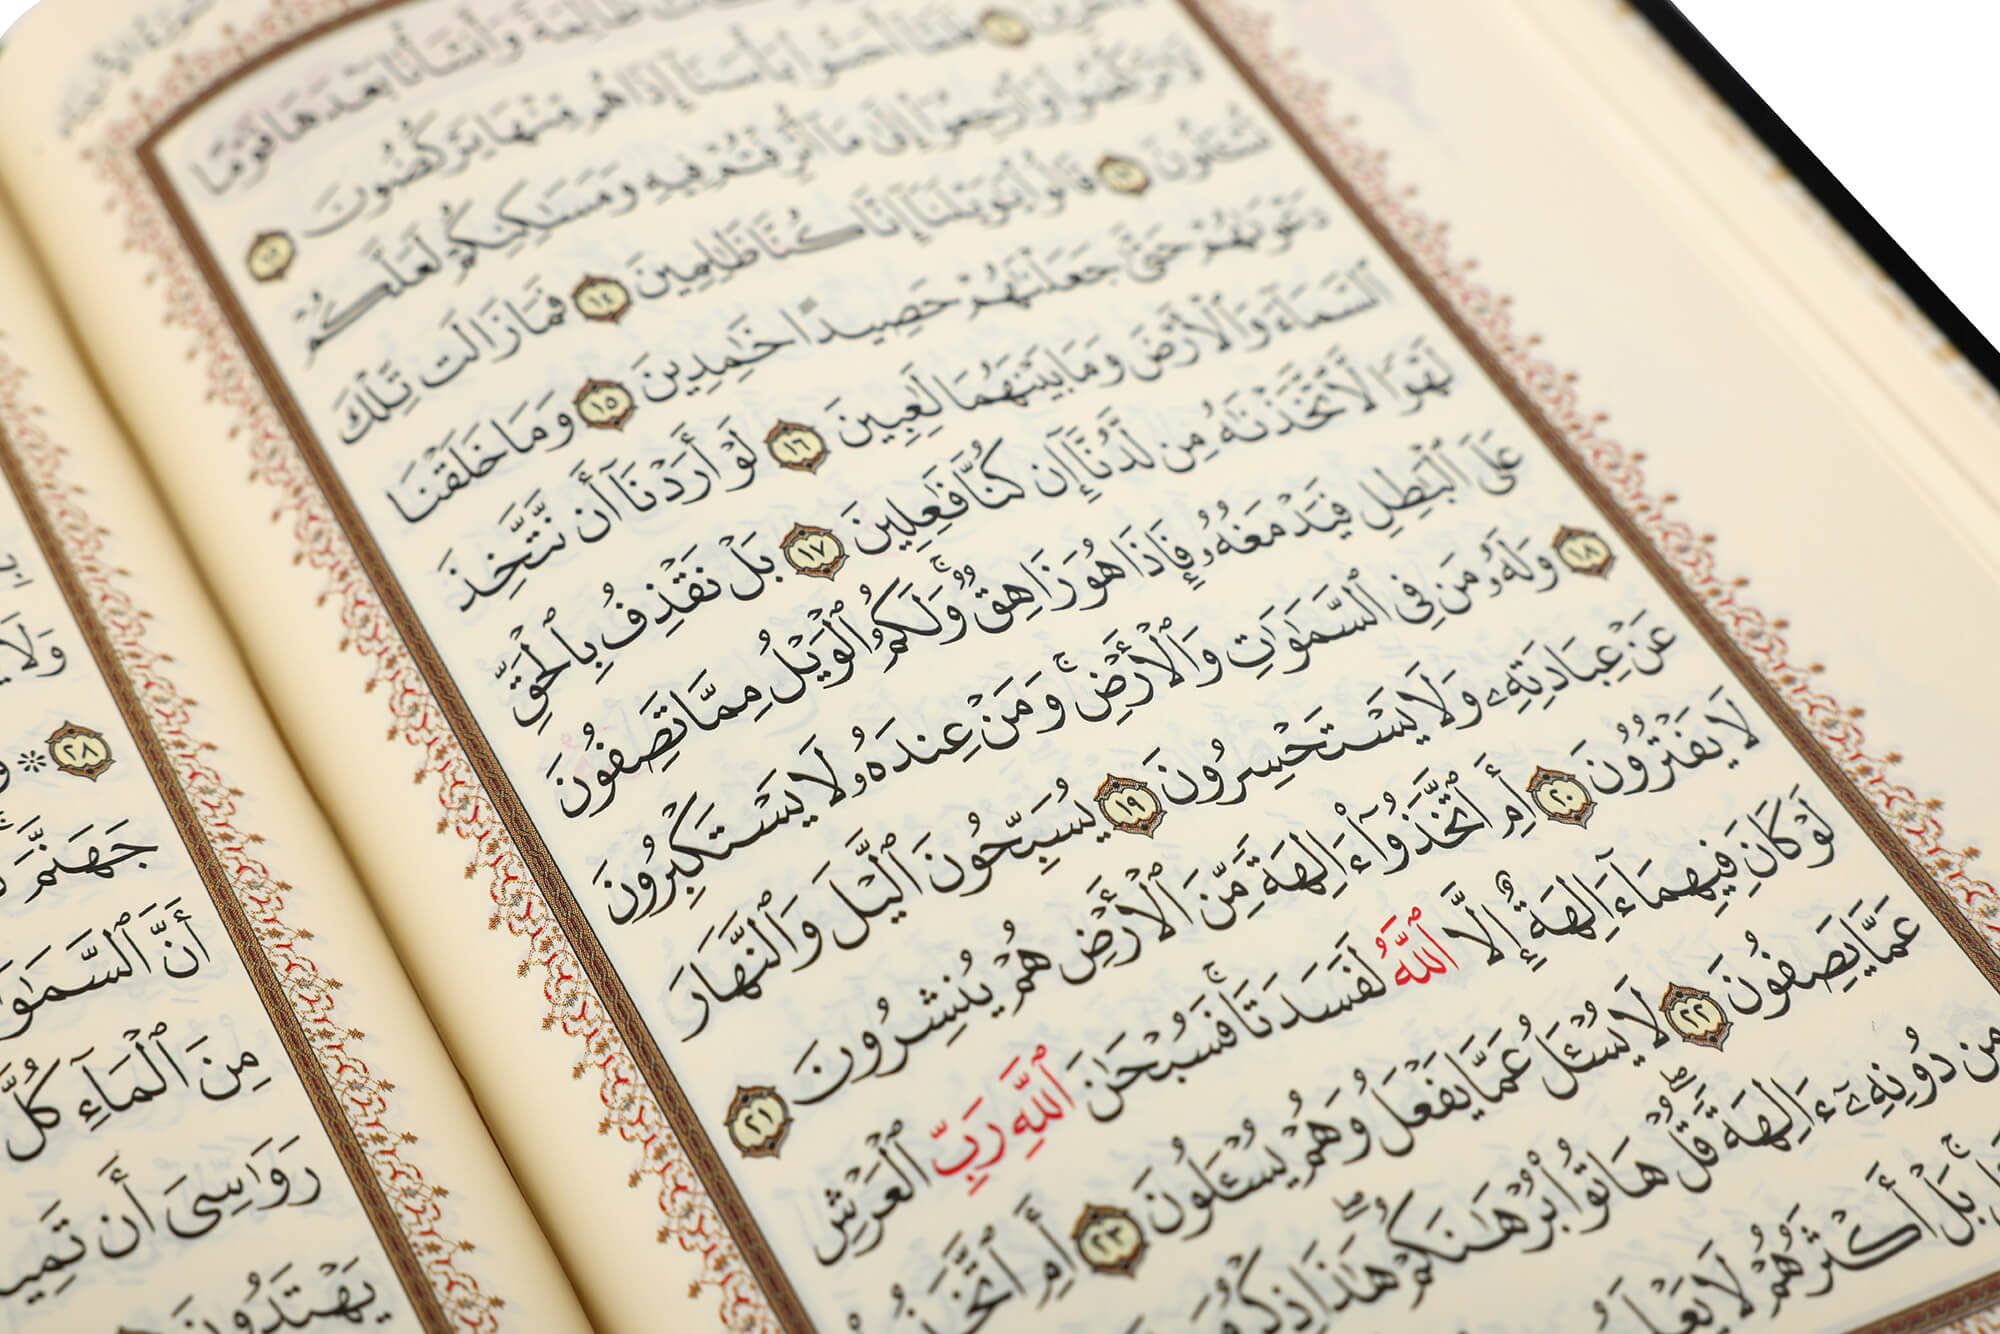 ظَالِمَةً وَأَنشَأْنَا بَعْدَهَا قَوْمًا
فَلَمَّآ أَحَسُّوا۟ بَأْسَنَآ إِذَا هُم مِّنْهَا يَرْكُضُونَ ١٢
لَا تَرْكُضُوا۟ وَٱرْجِعُوٓا۟ إِلَىٰ مَآ أُتْرِفْتُمْ فِيهِ وَمَسَـٰكِنِكُمْ لَعَلَّكُمْ
تُسْـَٔلُونَ ١٣ قَالُوا۟ يَـٰوَيْلَنَآ إِنَّا كُنَّا ظَـٰلِمِينَ ١٤ فَمَا زَالَت تِّلْكَ
دَعْوَىٰهُمْ حَتَّىٰ جَعَلْنَـٰهُمْ حَصِيدًا خَـٰمِدِينَ ١٥ وَمَا خَلَقْنَا
ٱلسَّمَآءَ وَٱلْأَرْضَ وَمَا بَيْنَهُمَا لَـٰعِبِينَ ١٦ لَوْ أَرَدْنَآ أَن نَّتَّخِذَ
لَهْوًا لَّٱتَّخَذْنَـٰهُ مِن لَّدُنَّآ إِن كُنَّا فَـٰعِلِينَ ١٧ بَلْ نَقْذِفُ بِٱلْحَقِّ
عَلَى ٱلْبَـٰطِلِ فَيَدْمَغُهُۥ فَإِذَا هُوَ زَاهِقٌ ۚ وَلَكُمُ ٱلْوَيْلُ مِمَّا تَصِفُونَ
١٨ وَلَهُۥ مَن فِى ٱلسَّمَـٰوَٰتِ وَٱلْأَرْضِ ۚ وَمَنْ عِندَهُۥ لَا يَسْتَكْبِرُونَ
عَنْ عِبَادَتِهِۦ وَلَا يَسْتَحْسِرُونَ ١٩ يُسَبِّحُونَ ٱلَّيْلَ وَٱلنَّهَارَ
لَا يَفْتُرُونَ ٢٠ أَمِ ٱتَّخَذُوٓا۟ ءَالِهَةً مِّنَ ٱلْأَرْضِ هُمْ يُنشِرُونَ ٢١
لَوْ كَانَ فِيهِمَآ ءَالِهَةٌ إِلَّا ٱللَّهُ لَفَسَدَتَا ۚ فَسُبْحَـٰنَ ٱللَّهِ رَبِّ ٱلْعَرْشِ
عَمَّا يَصِفُونَ ٢٢ لَا يُسْـَٔلُ عَمَّا يَفْعَلُ وَهُمْ يُسْـَٔلُونَ ٢٣ أَمِ ٱتَّخَذُ
مِن دُونِهِۦٓ ءَالِهَةً ۖ قُلْ هَاتُوا۟ بُرْهَـٰنَكُمْ ۖ هَـٰذَا ذِكْرُ
بَلْ أَكْثَرُهُمْ لَا يَعْلَ
وَلَا
٢٨ ۞
جَهَنَّمَ
أَنَّ ٱلسَّمَـٰوَ
مِنَ ٱلْمَآءِ كُلَّ
رَوَٰسِىَ أَن تَمِيـ
يَهْتَدُونَ